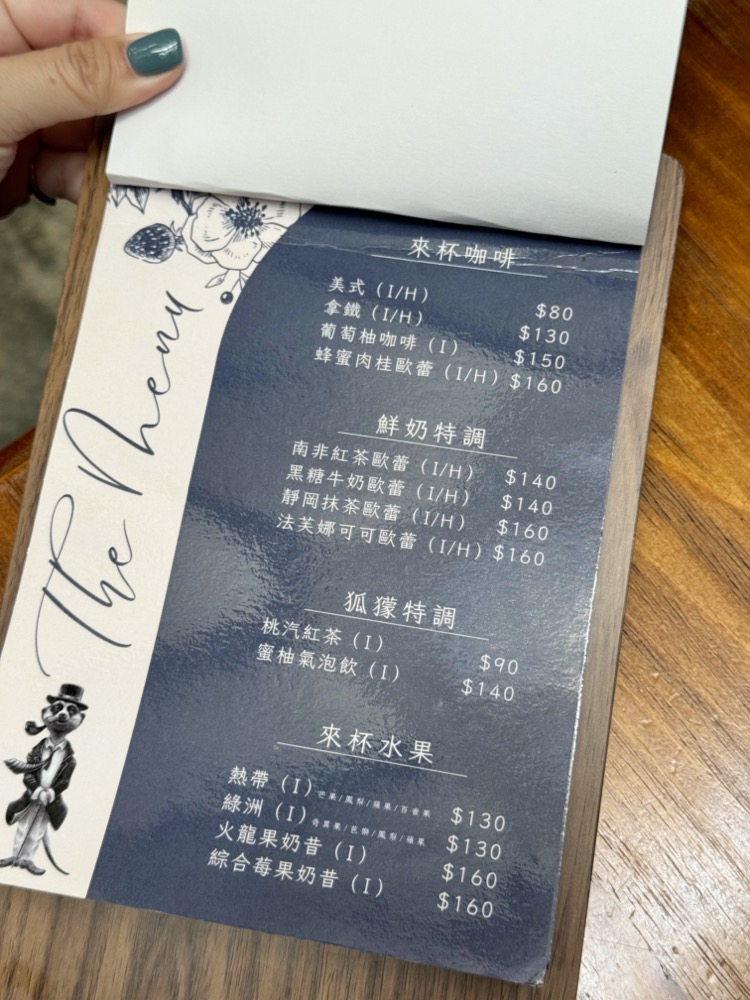 The Menu
來杯咖啡
美式 (I/H) $80
拿鐵 (I/H) $130
葡萄柚咖啡 (I) $150
蜂蜜肉桂歐蕾 (I/H) $160
鮮奶特調
南非紅茶歐蕾 (I/H) $140
黑糖牛奶歐蕾 (I/H) $140
靜岡抹茶歐蕾 (I/H) $160
法芙娜可可歐蕾 (I/H) $160
狐獴特調
桃汽紅茶 (I) $90
蜜柚氣泡飲 (I) $140
來杯水果
熱帶 (I) 芒果/鳳梨/蘋果/百香果 $130
綠洲 (I) 奇異果/芭樂/鳳梨/蘋果 $130
火龍果奶昔 (I) $160
綜合莓果奶昔 (I) $160